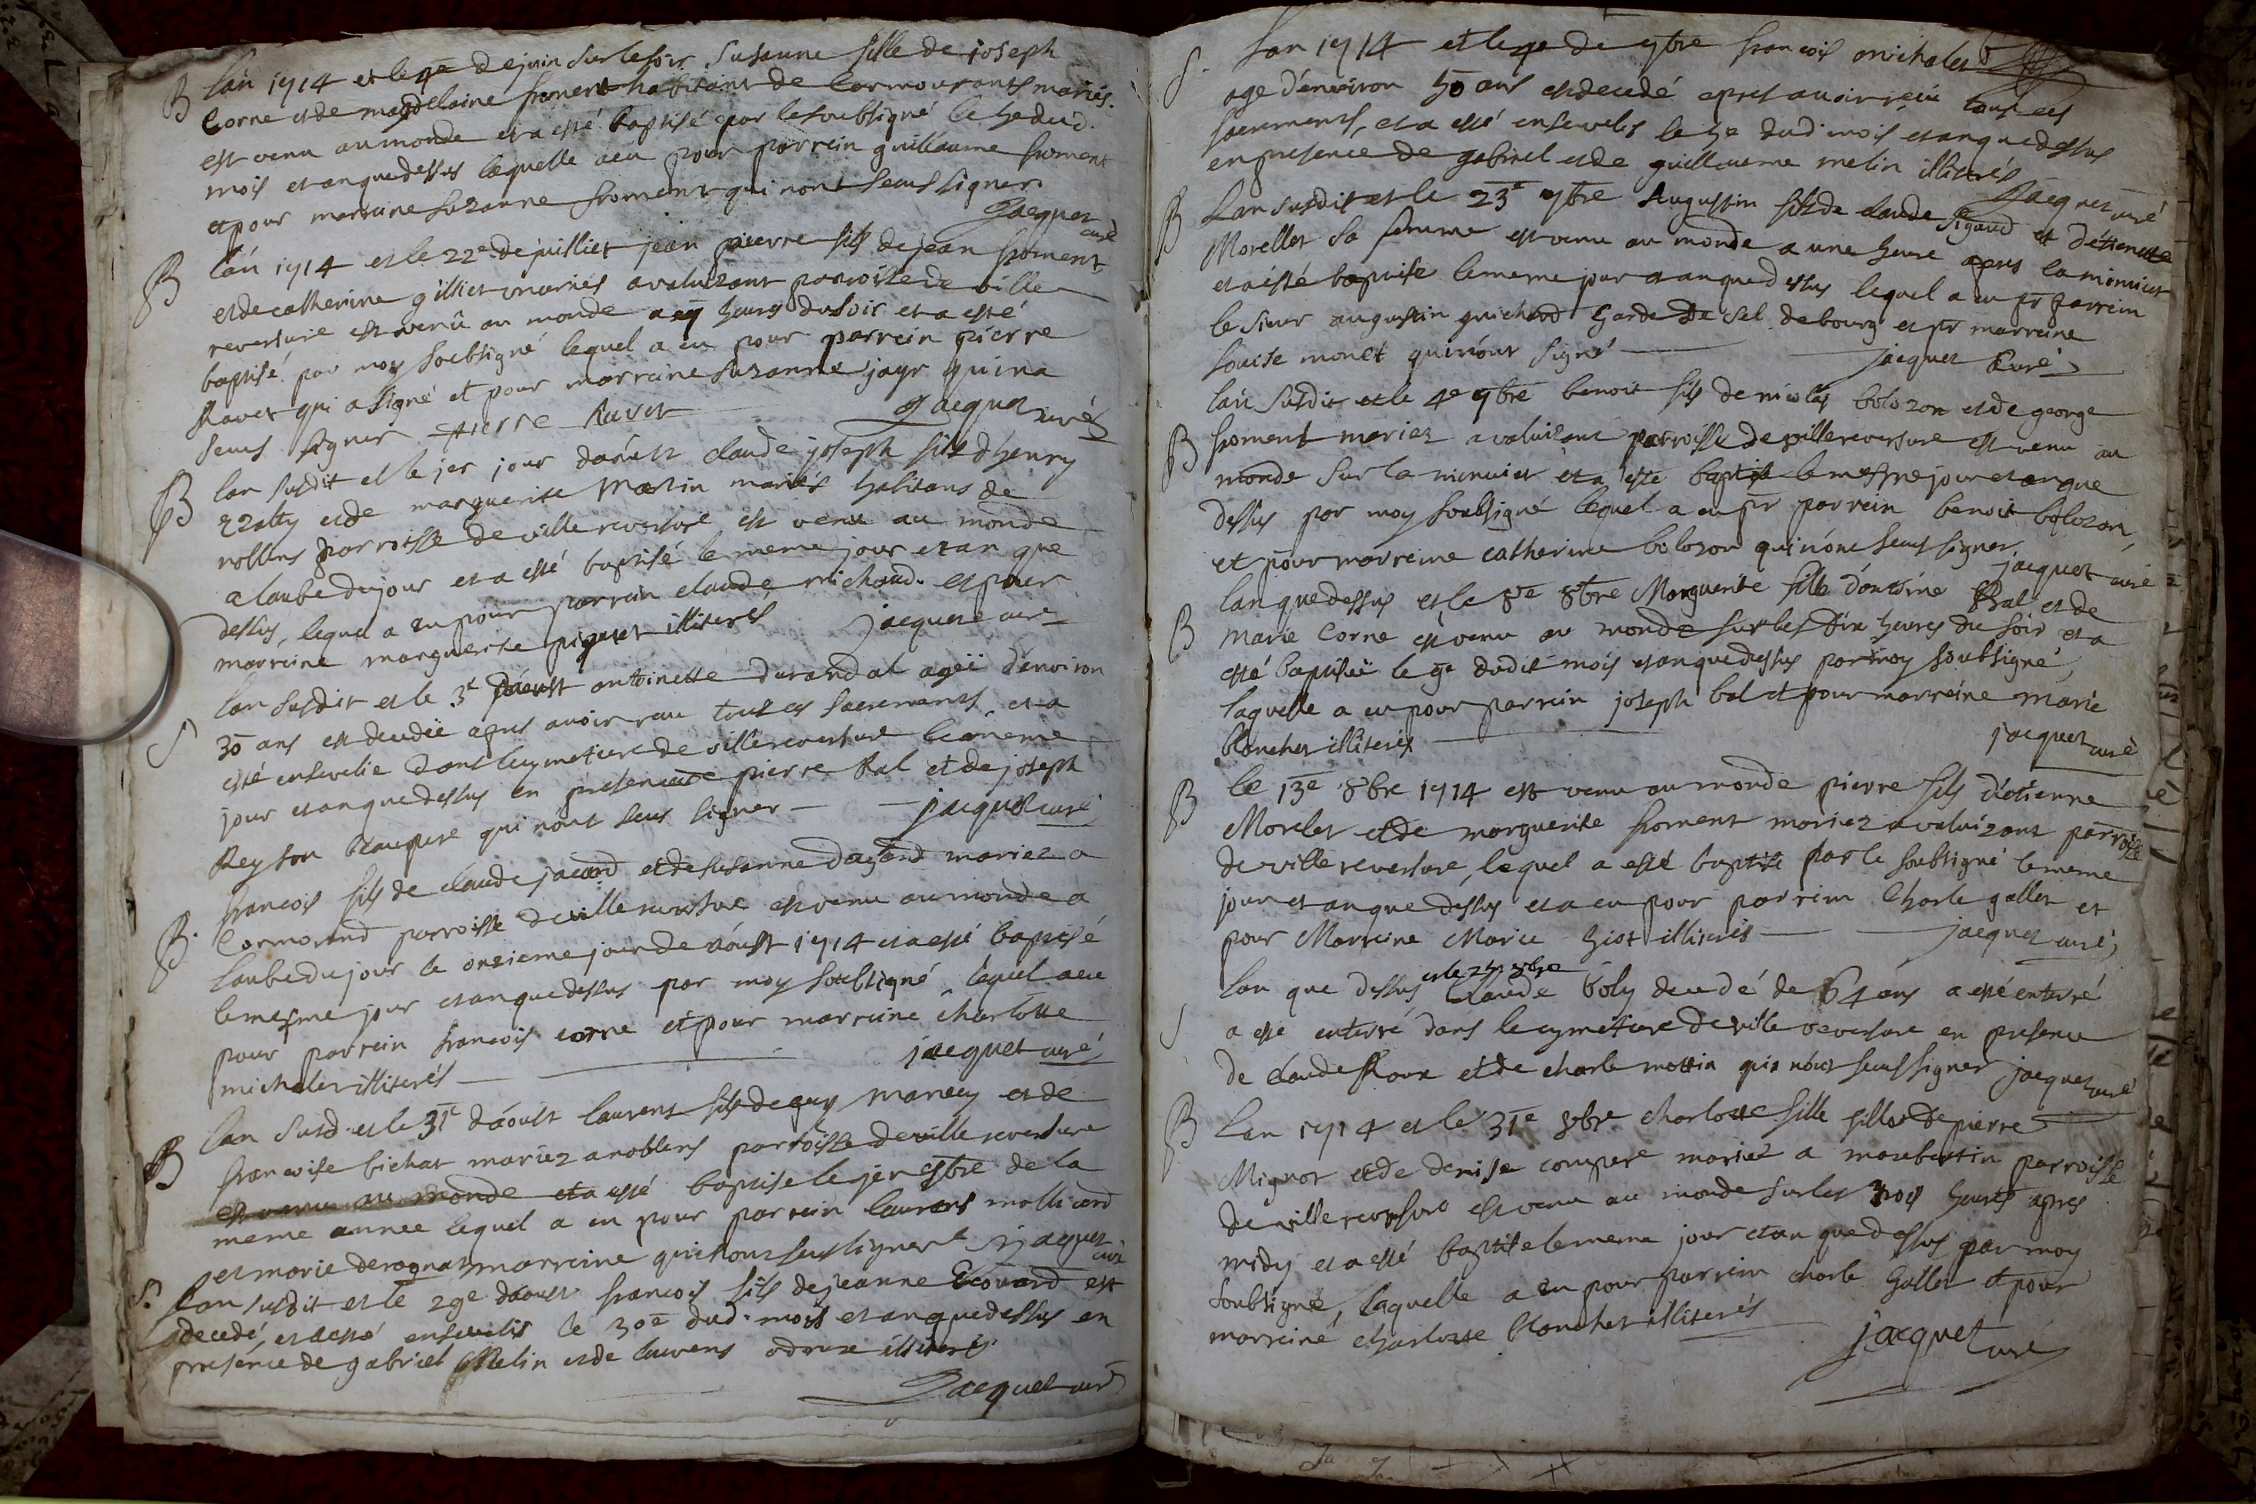 B Lan 1714 et le 4e de juin sur le soir Susanne fille de joseph
Corne et de magdelaine froment habitans de Cormourants mariés.
est venu au monde et a esté baptisé par le soubsigné le 5e dud.
mois et anquedessus laquelle a eu pour parrein guillaume froment
et pour marreine suzanne froment qui nont sceus signer.
Jacquet curé
B Lan 1714 et le 22e de juilliet jean pierre fils de jean froment
et de catherine gilliet mariés a valuizant parroisse de ville
reversure est venû au monde a heures du soir et a esté
baptisé par moy soubsigné lequel a eu pour parrein pierre
Ravet qui a signé et pour marreine suzanne jayr qui na
sceus signer pierre Ravet Jacquet curé
B lan susdit et le jer jour daoust claude joseph fils dhenry
et de marguerite Martin mariés habitans de
noblens parroisse de ville reversure est venu au monde
a laube du jour et a esté baptisé le meme jour et an que
dessus, lequel a eu pour parrein claude michaud. et pour
marreine marguerite piquet illiterés jacquet curé
S lan susdit et le 3e daoust antoinette durandal ageé denviron
30 ans est decedeé apres avoir receu tous es sacrements et a
esté ensevelie dans le cymetiere de ville reversure le meme
jour et anquedessus en presence de pierre Ral et de joseph
Rey son beaupere qui nont sceus signer jacquet curé
B. francois fils de claude jacoud et de susanne dagand mariez a
Cormorand parroisse de ville reversure est venu au monde a
laube du jour le onzieme jour de aoust 1714 et a esté baptisé
le mesme jour et anquedessus par moy soubsigné lequel a eu
pour parrein francois corne et pour marreine charlotte
michalet illiterés jacquet curé
B lan susd. et le 31e daoust laurent fils de guy marecy et de
francoise bichat mariez a noblens parroisse de ville reversure
est venu au monde et a esté baptise le jer 7bre de la
meme annee lequel a eu pour parrein laurens mollicard
et marie derognat marreine qui nont sceus signer jacquet curé
S. Lan susdit et le 29e daoust francois fils de jeanne Ecouard est
decedé, et a esté ensevelis le 30e dud. mois et anquedessus en
presence de gabriel Melin et de laurens illiterés.
Jacquet curé
S. Lan 1714 et le 4e de 7bre francois michalet
age denviron 50 ans est decedé apres avoir receu tous ces
sacrements, et a esté ensevelis le 5e dud. mois et anquedessus
en presence de gabriel et de guillaume melin illiterés
Jacquet curé
B Lan susdit et le 23e 7bre Augustin fils de claude Sigaud et détiennette
Morellet sa femme est venu au monde a une heure apres la minuict
et a esté baptise le meme jour et anquedessus lequel a eu pr parrein
le sieur augustin guichard Garde de sel de bourg et pr marreine
louise monet qui nont signé jacquet Curé
B lan susdit et le 4e 9bre benoit fils de nicolas bolozon et de george
froment mariez a valuizant parroisse de ville reversure est venu au
monde sur la minuict et a esté baptisé le mesme jour et anque
dessus par moy soubsigné lequel a eu pr parrein benoit bolozon,
et pour marreine catherine bolozon qui nont sceus signer
jacquet curé
B lan que dessus et le 8e 8bre Marguerite fille dantoine Bal et de
Marie Corne est venu au monde sur les dix heures du soir et a
esté baptiseé le 9e dudit mois et anquedessus par moy soubsigné,
laquelle a eu pour parrein joseph bal et pour marreine marie
blanchet illiterés jacquet curé
B le 13e 8bre 1714 est venu au monde pierre fils détienne
Morelet et de marguerite froment mariez a valuizant parroisse
de ville reversure, lequel a esté baptisé par le soubsigné le meme
jour et anque dessus et a eu pour parrein Charle gallet et
pour Marreine Marie giot illiterés jacquet curé
S lan que dessus et le 8bre Claude Boly decedé de 64 ans a esté enterré
a esté enterré dans le cymetiere de ville reversure en presence
de claude Roux et de charle mottin qui nont sceus signer jacquet curé
B Lan 1714 et le 31e 8bre charlotte fille fille de pierre
Mignot et de denise compere mariez a maubertin parroisse
de ville reversure est venu au monde sur les trois heures apres
midy et a esté baptise le meme jour et an que dessus par moy
soubsigné, laquelle a eu pour parrein charle Gallet et pour
marreine charlotte blanchet illiterés
jacquet curé